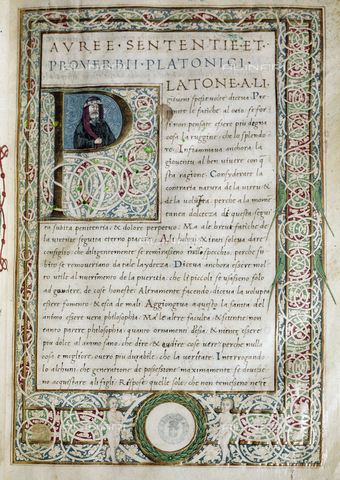 AVREE · SENTENTIE · ET ·
PROVERBII · PLATONICI ·
PLATONE · A LI
gioveni spesse volte diceva Pre
ponete le fatiche al ocio. se for
si non pensate essere piu degna
cosa la ruggine, che lo splendo
re. Infiammava anchora, la
gioventu al ben vivere con q
sta ragione. Considerate la
contraria natura de la virtu &
de la volupta, perche a la mome
tanea dolceza di questa segui
ta subita penitentia, & dolore perpetuo. Ma a le breve fatiche de
la virtute seguita eterno piacere. Ali
consiglio, che diligentemente se remirassino nello specchio, perche su
bito se removeriano da tale laydeza. Diceva anchora essere mol
to utile al nutrimento de la pueritia, che li piccoli se usassino solo
ad gaudere, de cose honeste. Altramente facendo: diceva la volupta
essere fomento, & esca de mali. Aggiongeva a questo la sanita del
animo essere vera philosophia. Ma le altre faculta, & scientie: non
tanto parere philosophia: quanto ornamenti d'essa. & niente essere
piu dolce al animo sano, che dire, & audire cose vere, perche nulla
cosa e migliore, overo piu durabile, che la veritate. Interrogando
lo alchuni, che generatione de possessione maximamente se devesse
no acquistare ali figli. Respose, quelle sole che non temessino neve